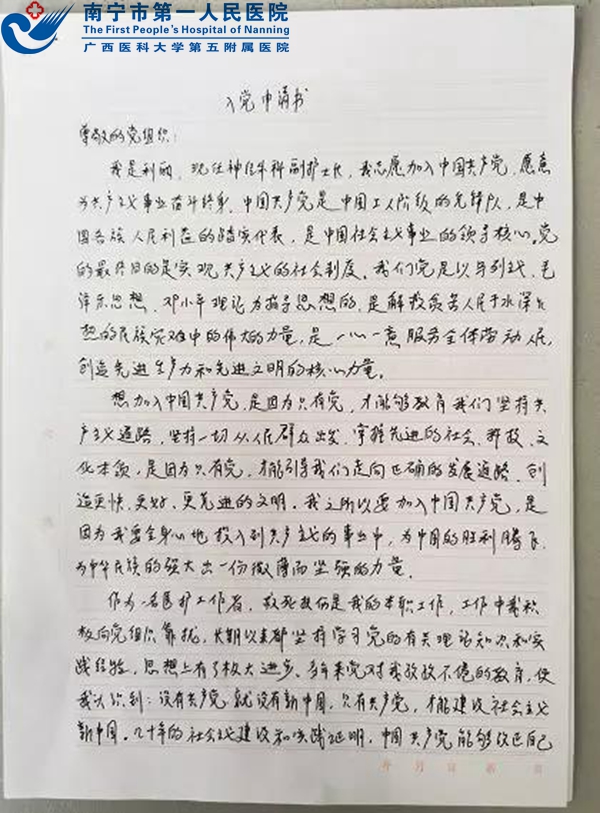 南宁市第一人民医院
The First People's Hospital of Nanning
广西医科大学第五附属医院
入党申请书
尊敬的党组织：
我是利丽，现任神经外科副护士长，我志愿加入中国共产党，愿意
为共产主义事业奋斗终身。中国共产党是中国工人阶级的先锋队，是中
国各族人民利益的踏实代表，是中国社会主义事业的领导核心。党
的最终目的是实现共产主义的社会制度。我们党是以马列主义、毛
泽东思想、邓小平理论为指导思想的，是解救受苦人民于水深火
热的民族灾难中的伟大的力量，是一心一意服务全体劳动人民，
创造先进生产力和先进文明的核心力量。
想加入中国共产党，是因为只有党，才能够教育我们坚持共
产主义道路，坚持一切从人民群众出发，掌握先进的社会、科技、文
化本领，是因为只有党，才能引导我们走向正确的发展道路，创
造更快、更好、更先进的文明。我之所以要加入中国共产党，是
因为我要全身心地投入到共产主义的事业中，为中国的胜利腾飞，
为中华民族的强大出一份微薄而坚强的力量。
作为一名医护工作者，救死扶伤是我的本职工作，工作中我积
极向党组织靠拢，长期以来都坚持学习党的有关理论知识和实
践经验，思想上有了极大进步。多年来党对我孜孜不倦的教育，使
我认识到：没有共产党，就没有新中国。只有共产党，才能建设社会主义
新中国。几十年的社会主义建设和实践证明，中国共产党能够改正自己